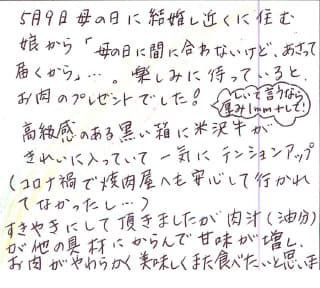 5月9日母の日に結婚し近くに住む
娘から「母の日に間に合わないけど、あさって
届くから」…。楽しみに待っていると、
お肉のプレゼントでした!
しいて言うなら
厚み1mm+して!
高級感のある黒い箱に米沢牛が
きれいに入っていて一気にテンションアップ
(コロナ禍で焼肉屋へも安心して行かれ
てなかったし…)
すきやきにして頂きましたが肉汁(油分)
が他の具材にからんで甘味が増し、
お肉がやわらかく美味しくまた食べたいと思いま